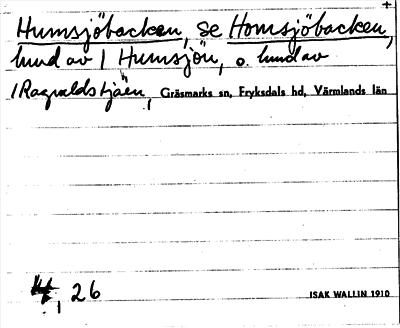 Humsjöbacken, se Homsjöbacken,
hund av 1 Humsjön, o. hund av
1 Ragvaldstjärn, Gräsmarks sn, Fryksdals hd, Värmlands län
26
ISAK WALLIN 1910